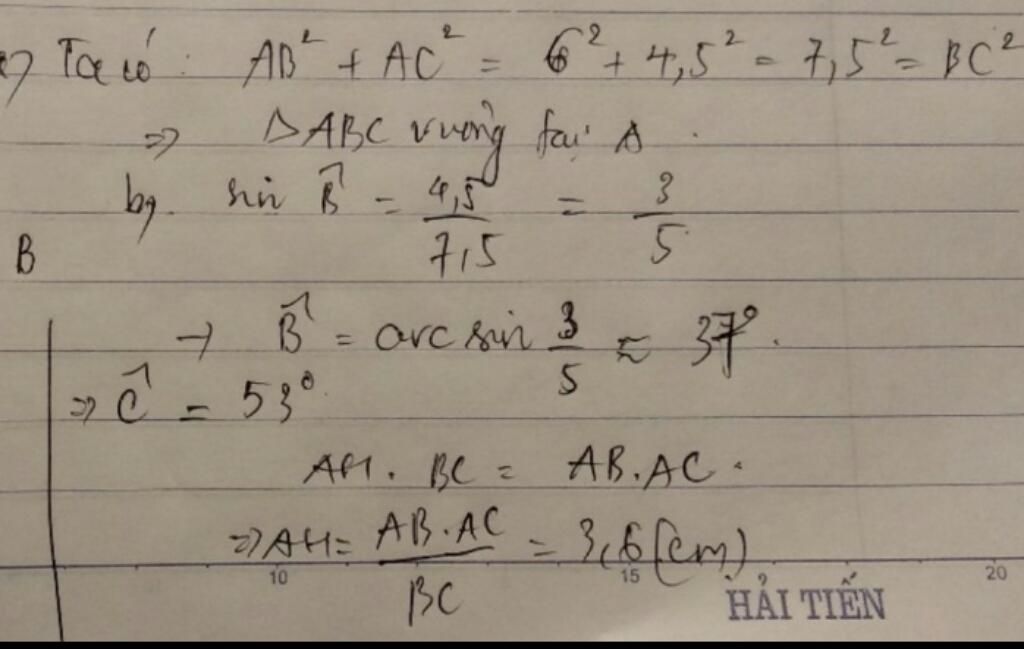 a) Ta có : AB² + AC² = 6² + 4,5² = 7,5² = BC²
=> ΔABC vuông tại A .
b) sin B̂ = 4,5/7,5 = 3/5
B
→ B̂ = arc sin 3/5 ≈ 37° .
=> Ĉ = 53°
AH . BC = AB . AC .
=> AH = AB . AC/BC = 3,6 (cm)
10 15 20
HẢI TIẾN